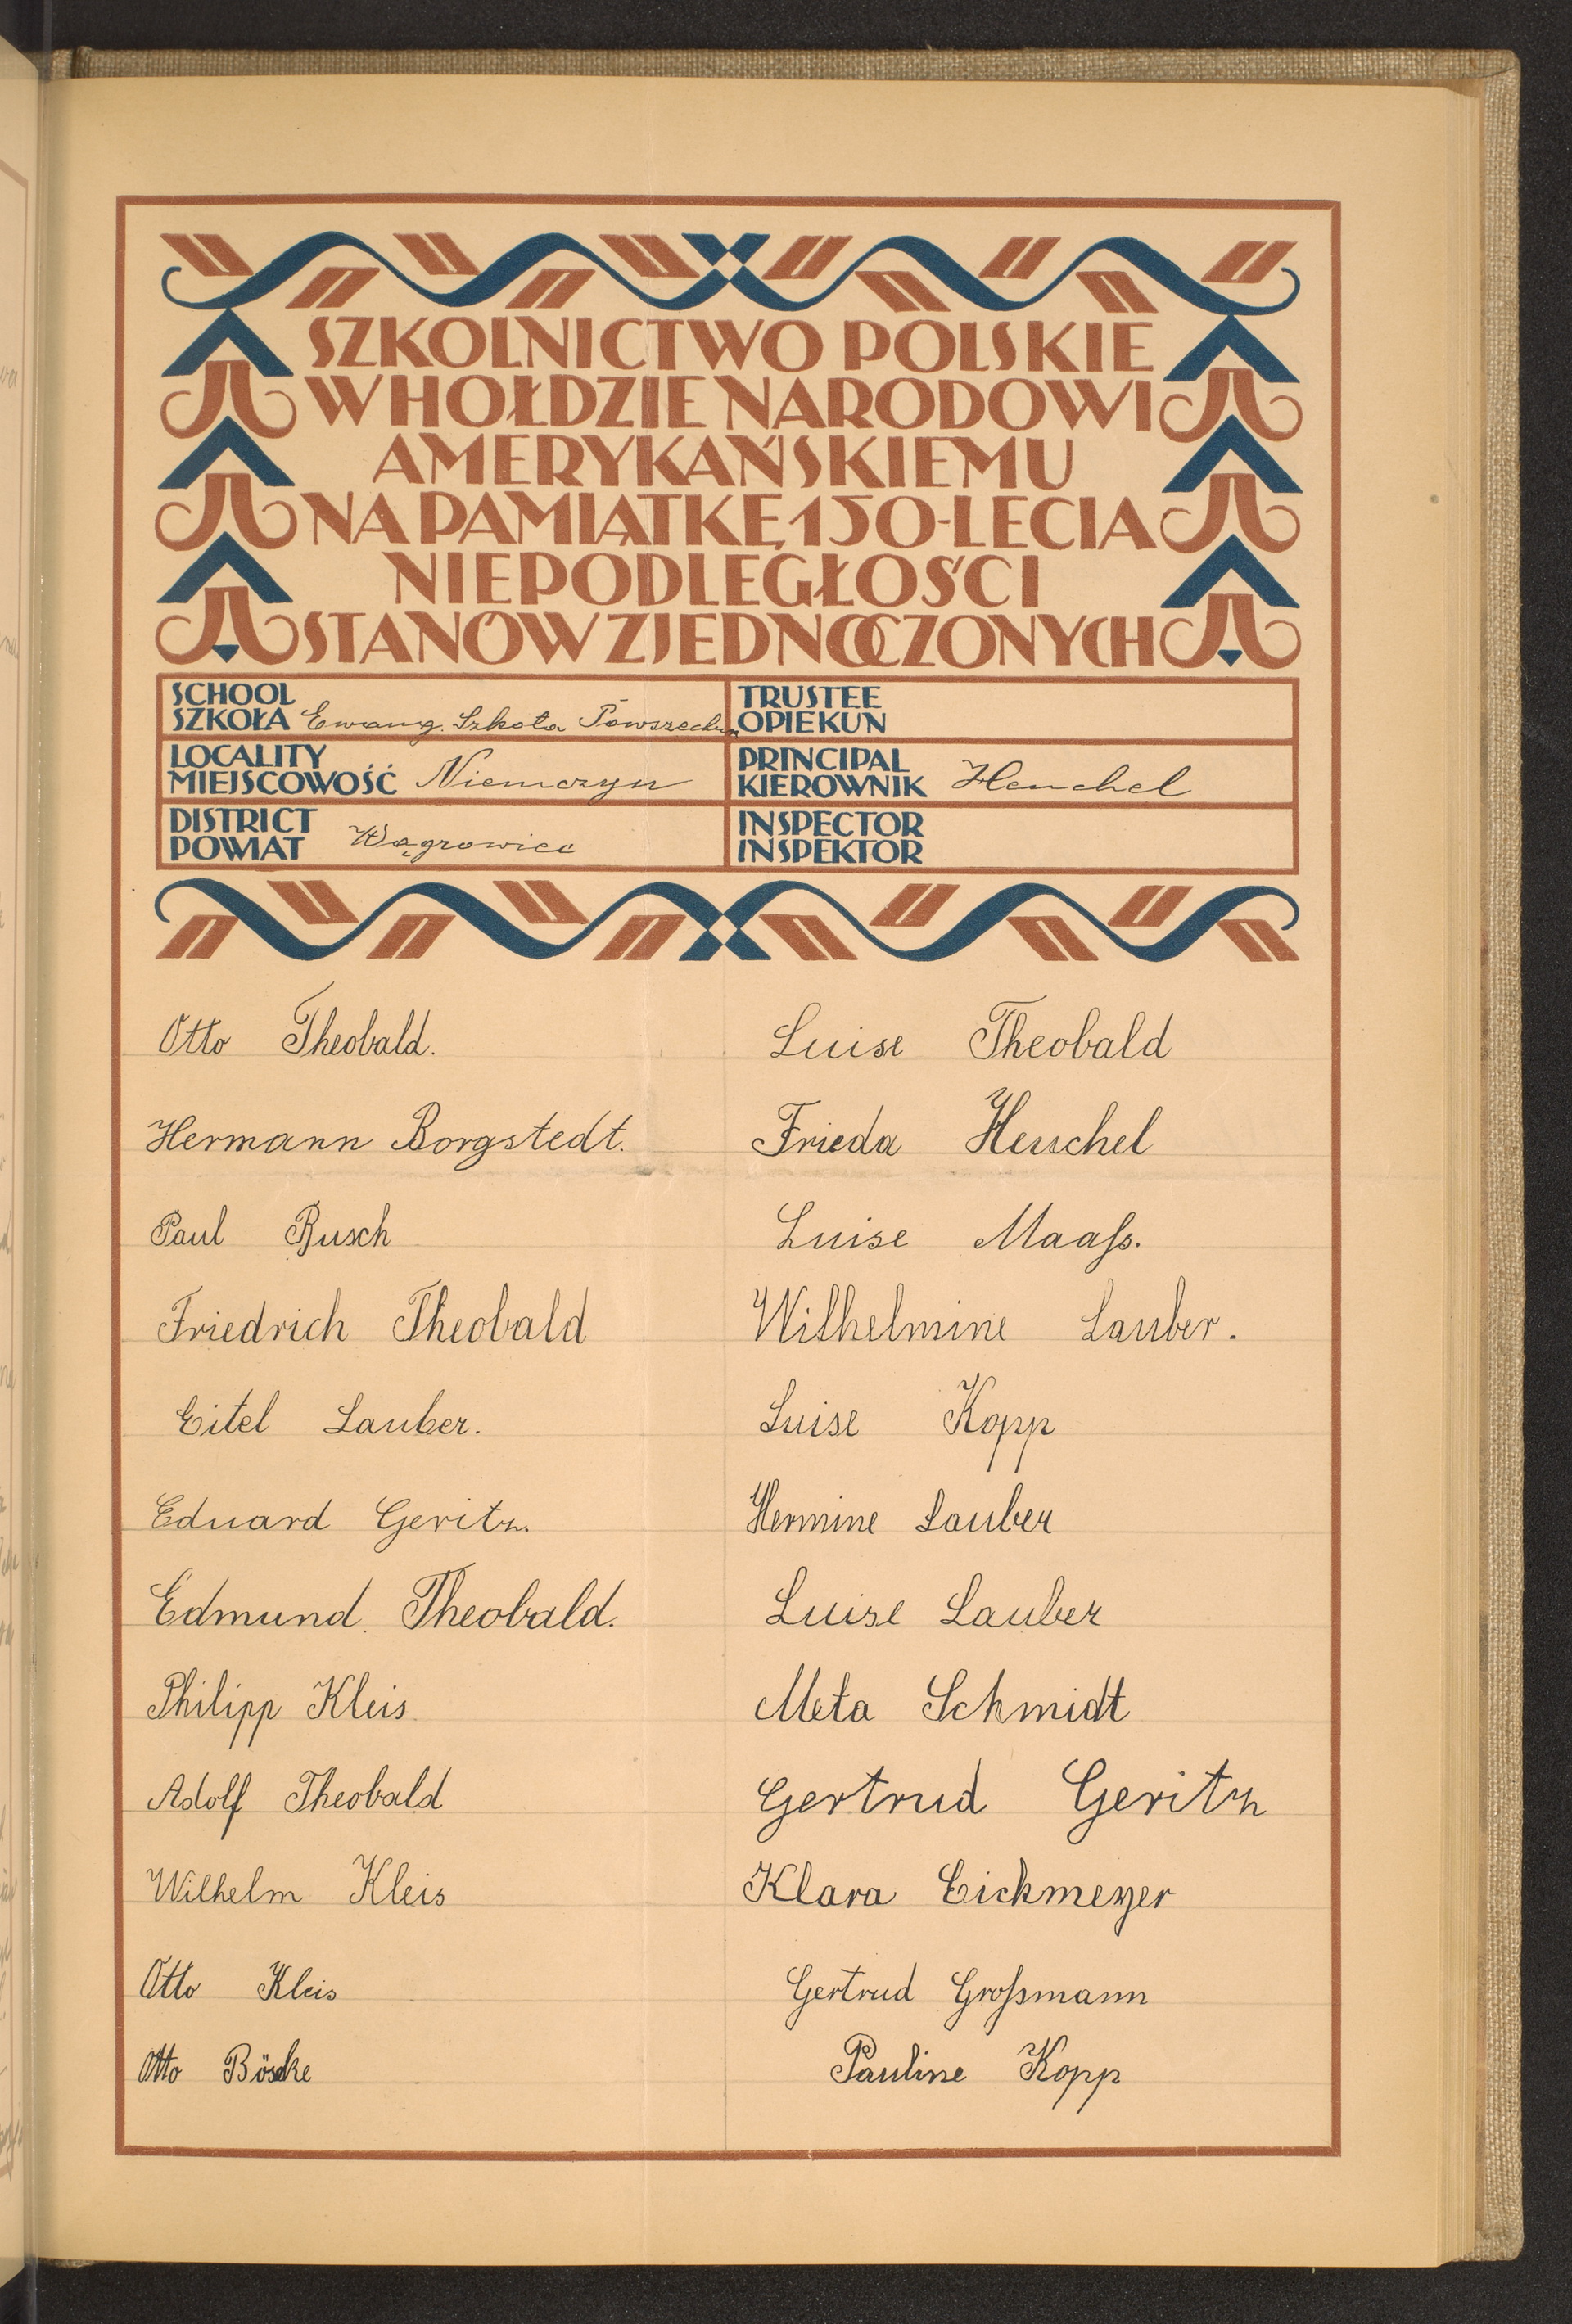 SZKOLNICTWO POLSKIE
W HOŁDZIE NARODOWI
AMERYKAŃSKIEMU
NA PAMIĄTKĘ 150-LECIA
NIEPODLEGŁOŚCI
STANÓW ZJEDNOCZONYCH
SCHOOL
SZKOŁA Ewang. Szkoła Powszechna
TRUSTEE
OPIEKUN
LOCALITY
MIEJSCOWOŚĆ Niemczyn
PRINCIPAL
KIEROWNIK Henchel
DISTRICT
POWIAT Wągrowiec
INSPECTOR
INSPEKTOR
Otto Theobald.
Hermann Borgstedt.
Paul Busch
Friedrich Theobald
Eitel Lauber.
Eduard Geritz.
Edmund Theobald.
Philipp Kleis
Adolf Theobald
Wilhelm Kleis
Otto Kleis
Otto Böske
Luise Theobald
Frieda Henchel
Luise Maaß.
Wilhelmine Lauber.
Luise Kopp
Hermine Lauber
Luise Lauber
Meta Schmidt
Gertrud Geritz
Klara Eickmeyer
Gertrud Großmann
Pauline Kopp